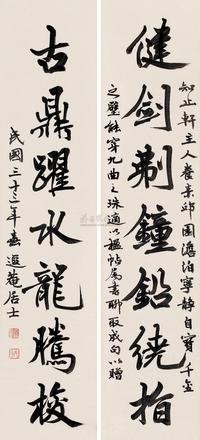 健剑制鐘鉛绕指
知止軒主人養素邱園澹泊寧静自寶千金
之壁能穿九曲之珠適以楹帖屬書聊取成句以贈
古鼎躍水龍騰梭
民國三十二年春
遐菴居士